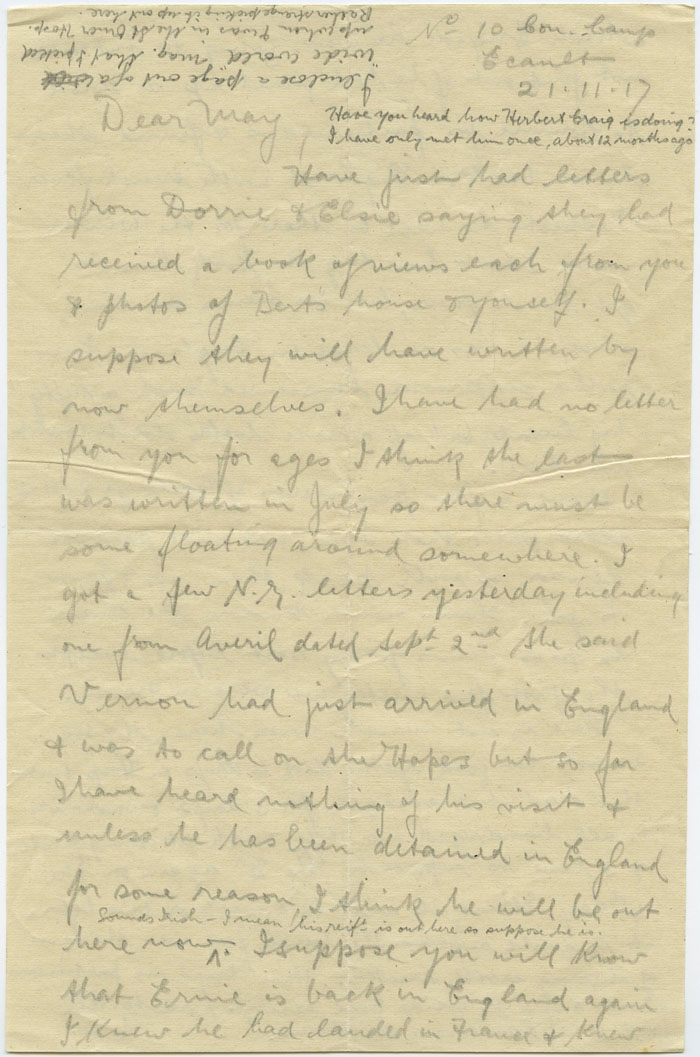 No 10 Con. Camp
Ecault
21.11.17
I enclose a page out of a
"wide world" mag. that I picked
up when I was in the St Omer Hosp.
Rather strange picking it up out here.
Dear May,
Have you heard how Herbert Craig is doing?
I have only met him once, about 12 months ago
Have just had letters
from Dorrie & Elsie saying they had
received a book of views each from you
& photos of Bert's house & yourself. I
suppose they will have written by
now themselves. I have had no letter
from you for ages I think the last
was written in July so there must be
some floating around somewhere. I
got a few N.Z. letters yesterday including
one from Averil dated Sept 2nd She said
Vernon had just arrived in England
& was to call on the Hopes but so far
I have heard nothing of his visit &
unless he has been detained in England
for some reason I think he will be out
Sounds Irish - I mean his reift is out here so suppose he is.
here now. I suppose you will know
that Ernie is back in England again
I knew he had landed in France & knew